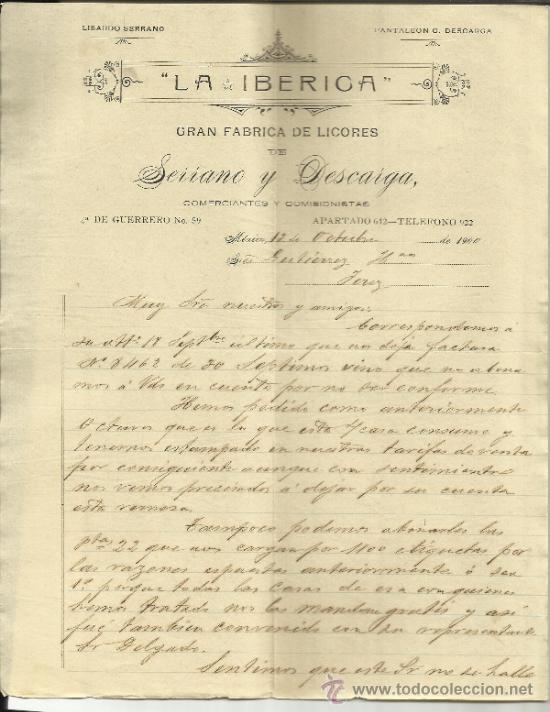 LIBARDO SERRANO
PANTALEON G. DESCARGA
"LA IBERICA"
GRAN FABRICA DE LICORES
DE
Serrano y Descarga,
COMERCIANTES Y COMISIONISTAS
4ª DE GUERRERO No. 59
APARTADO 612—TELEFONO 922
México, 12 de Octubre de 1900
Sres Gutiérrez Hnos
Jerez
Muy Sres nuestros y amigos:
Correspondemos á
su att. 18 Septbre último que nos dejó factura
Nº 8462 de 20 Septimos vino que no abona
mos á Vds en cuenta por no ser conforme.
Hemos pedido como anteriormente
Octavos que es lo que esta casa consume y
tenemos estampado en nuestras tarifas de venta
por consiguiente aunque con sentimiento
nos vemos precisados á dejar por su cuenta
esta remesa.
Tampoco podemos abonarles las
pta 22 que nos cargan por 1100 etiquetas por
las razones espuestas anteriormente ó sea
1º porque todas las casas de esa con quienes
hemos tratado nos las mandan gratis y así
fué tambien convenido con su representante
Sr Delgado.
Sentimos que este Sr no se halle
todocoleccion
www.todocoleccion.net